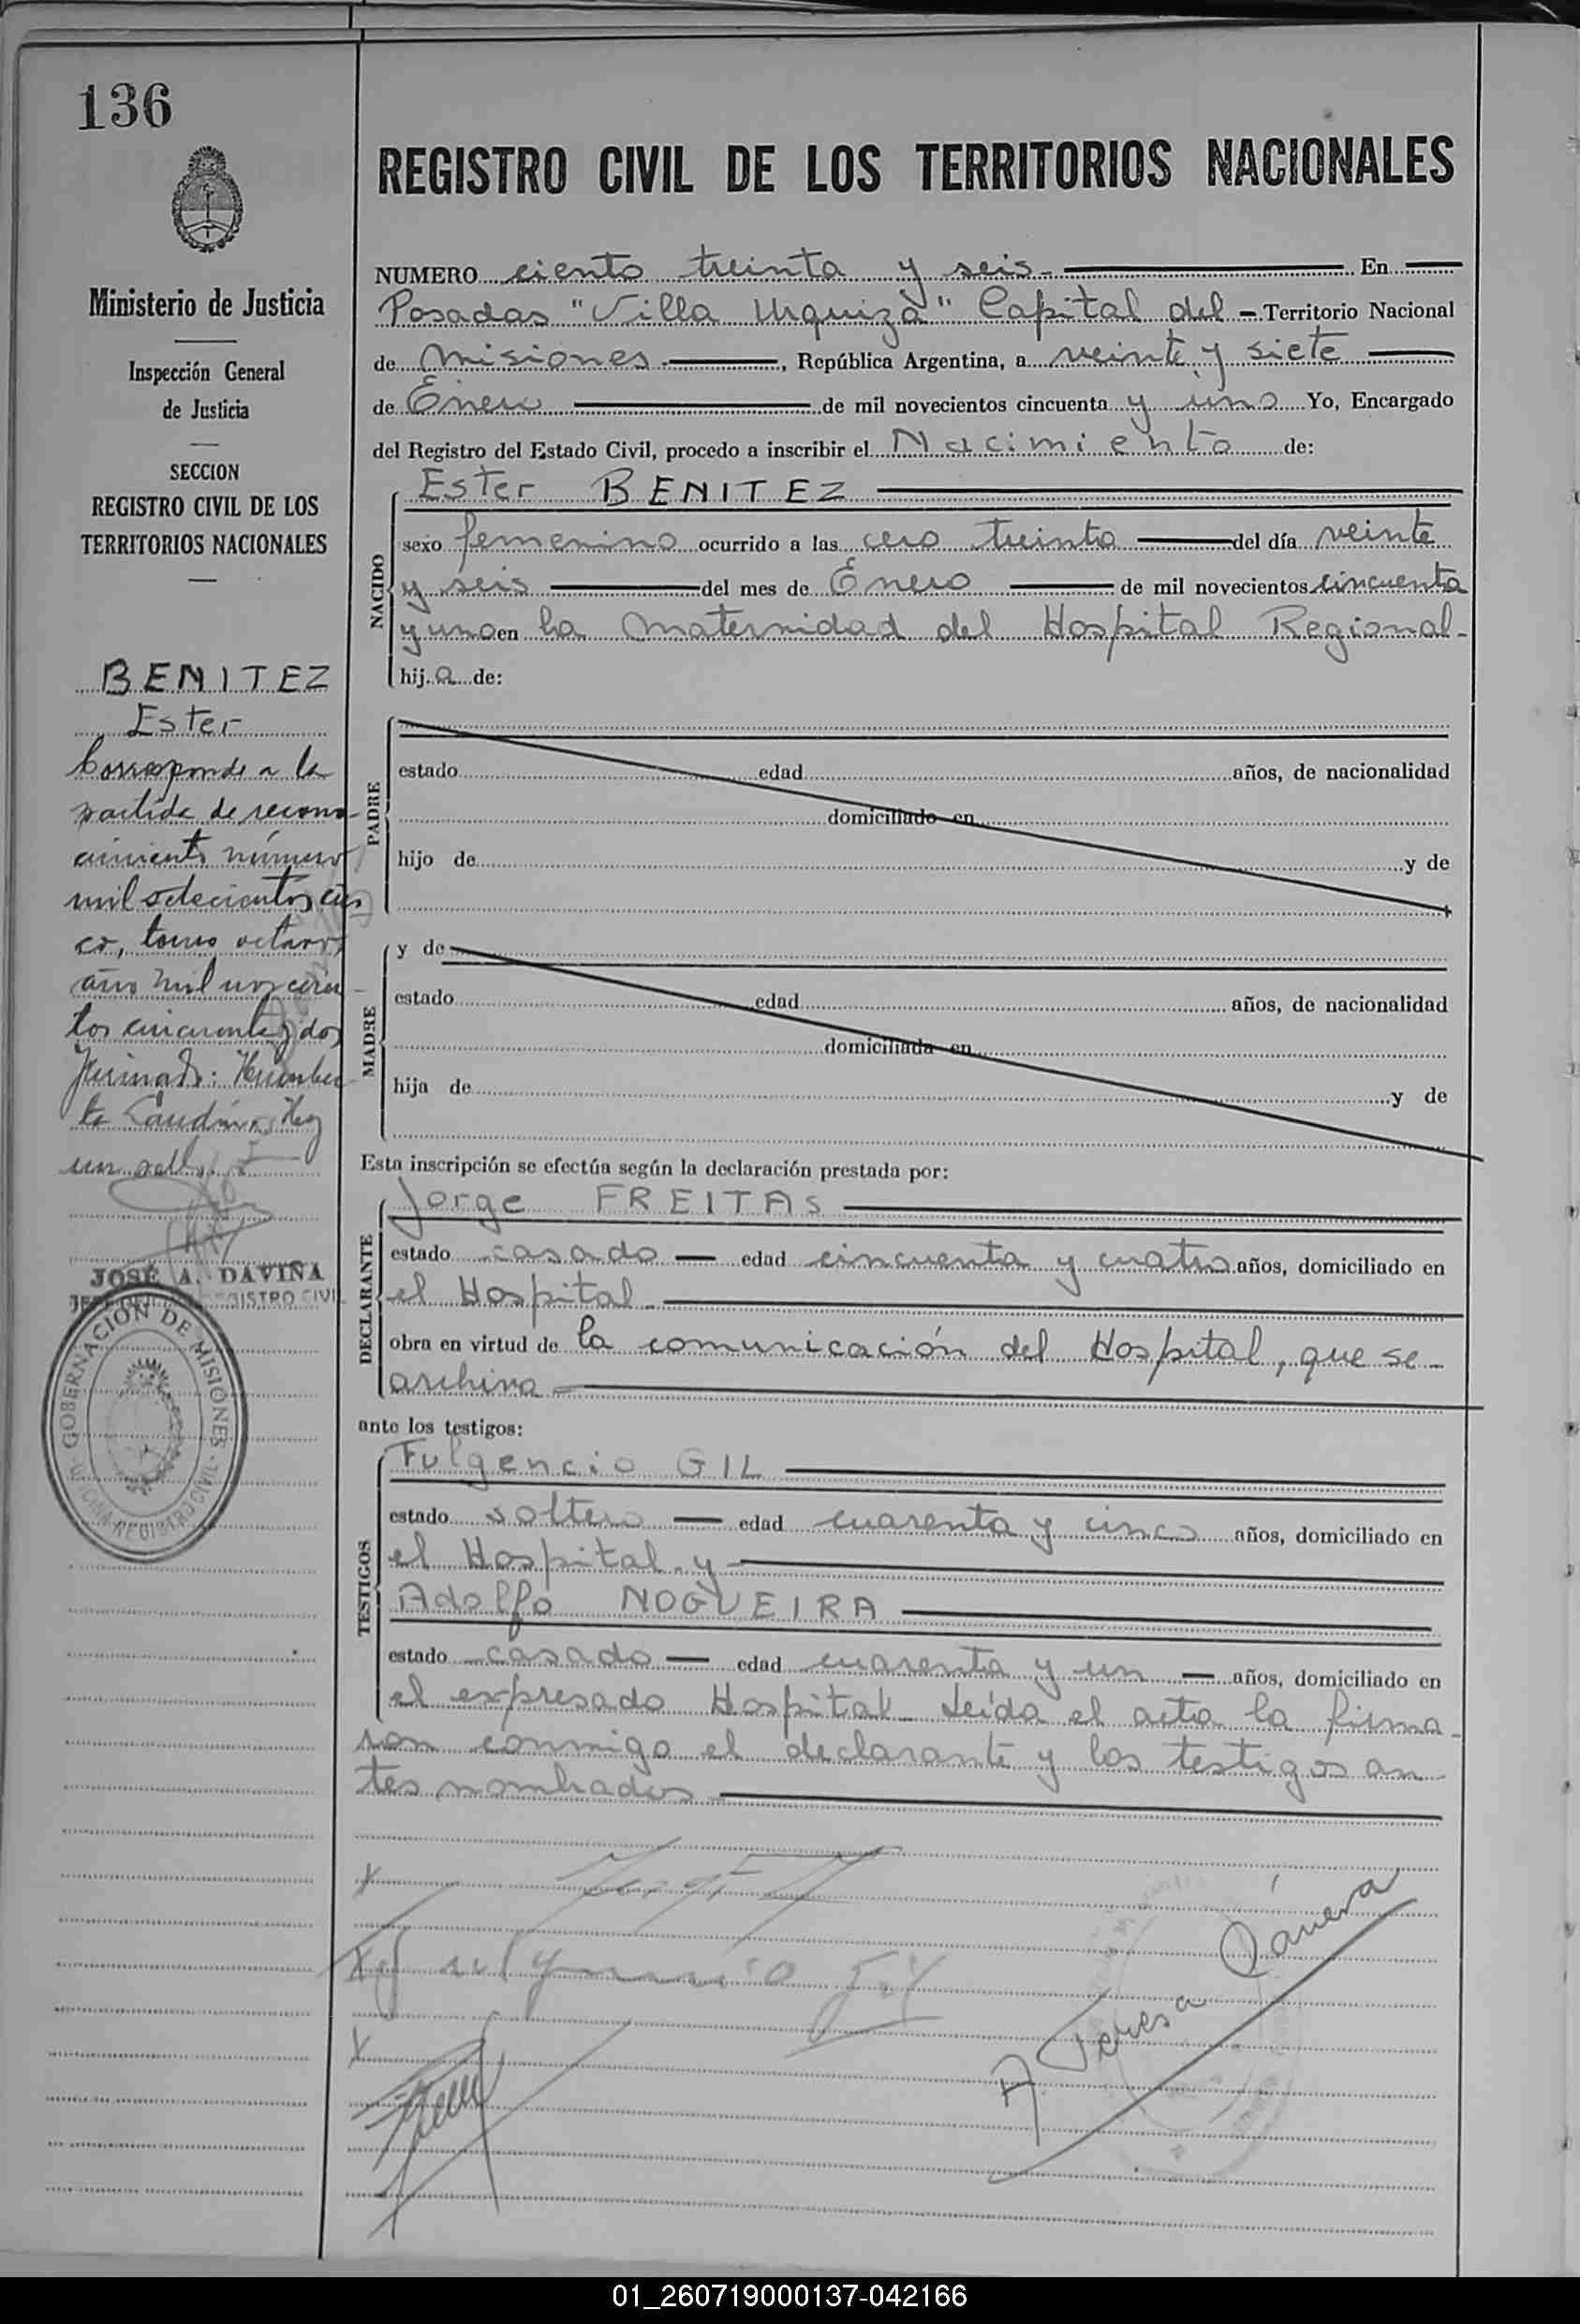 136
REGISTRO CIVIL DE LOS TERRITORIOS NACIONALES
Ministerio de Justicia
Inspección General
de Justicia
SECCION
REGISTRO CIVIL DE LOS
TERRITORIOS NACIONALES
BENITEZ
Ester
Corresponde a la
partida de recono-
cimiento número
mil setecientos cin
co, tomo octavo,
año mil novecien-
tos cincuenta y dos
Firmado: Humber
to Hay
un sello.
JOSÉ A. DAVIÑA
REGISTRO CIVIL
GOBERNACION DE MISIONES - OFICINA REGISTRO CIVIL -
NUMERO ciento treinta y seis- En
Posadas "Villa Urquiza" Capital del - Territorio Nacional
de Misiones , República Argentina, a veinte y siete
de Enero de mil novecientos cincuenta y uno Yo, Encargado
del Registro del Estado Civil, procedo a inscribir el Nacimiento de:
NACIDO
Ester BENITEZ
sexo femenino ocurrido a las cero treinta del día veinte
y seis del mes de Enero de mil novecientos cincuenta
y uno en la Maternidad del Hospital Regional-
hija de:
PADRE
estado edad años, de nacionalidad
domiciliado en
hijo de y de
MADRE
y de
estado edad años, de nacionalidad
domiciliada en
hija de y de
Esta inscripción se efectúa según la declaración prestada por:
DECLARANTE
Jorge FREITAS
estado casado — edad cincuenta y cuatro años, domiciliado en
el Hospital
obra en virtud de la comunicación del Hospital, que se-
archiva
ante los testigos:
TESTIGOS
Fulgencio GIL
estado soltero — edad cuarenta y cinco años, domiciliado en
el Hospital y
Adolfo NOGUEIRA
estado casado — edad cuarenta y un — años, domiciliado en
el expresado Hospital- Leída el acta la firma-
ron conmigo el declarante y los testigos an-
tes nombrados
x
x Fulgencio Gil
x
A. Teresa
01_260719000137-042166